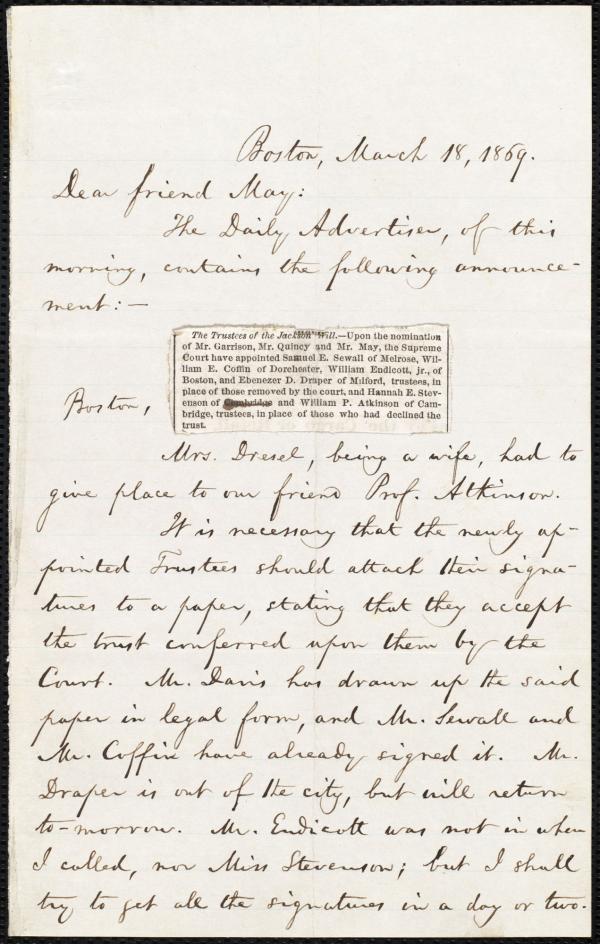 Boston, March 18, 1869.
Dear friend May:
The Daily Advertiser, of this
morning, contains the following announce-
ment:—
The Trustees of the Jackson Will.—Upon the nomination
of Mr. Garrison, Mr. Quincy and Mr. May, the Supreme
Court have appointed Samuel E. Sewall of Melrose, Wil-
liam E. Coffin of Dorchester, William Endicott, jr., of
Boston, and Ebenezer D. Draper of Milford, trustees, in
place of those removed by the court, and Hannah E. Stev-
enson of Cambridge and William P. Atkinson of Cam-
bridge, trustees, in place of those who had declined the
trust.
Boston,
Mrs. Dresel, being a wife, had to
give place to our friend Prof. Atkinson.
It is necessary that the newly ap-
pointed Trustees should attach their signa-
tures to a paper, stating that they accept
the trust conferred upon them by the
Court. Mr. Davis has drawn up the said
paper in legal form, and Mr. Sewall and
Mr. Coffin have already signed it. Mr.
Draper is out of the city, but will return
to-morrow. Mr. Endicott was not in when
I called, nor Miss Stevenson; but I shall
try to get all the signatures in a day or two.